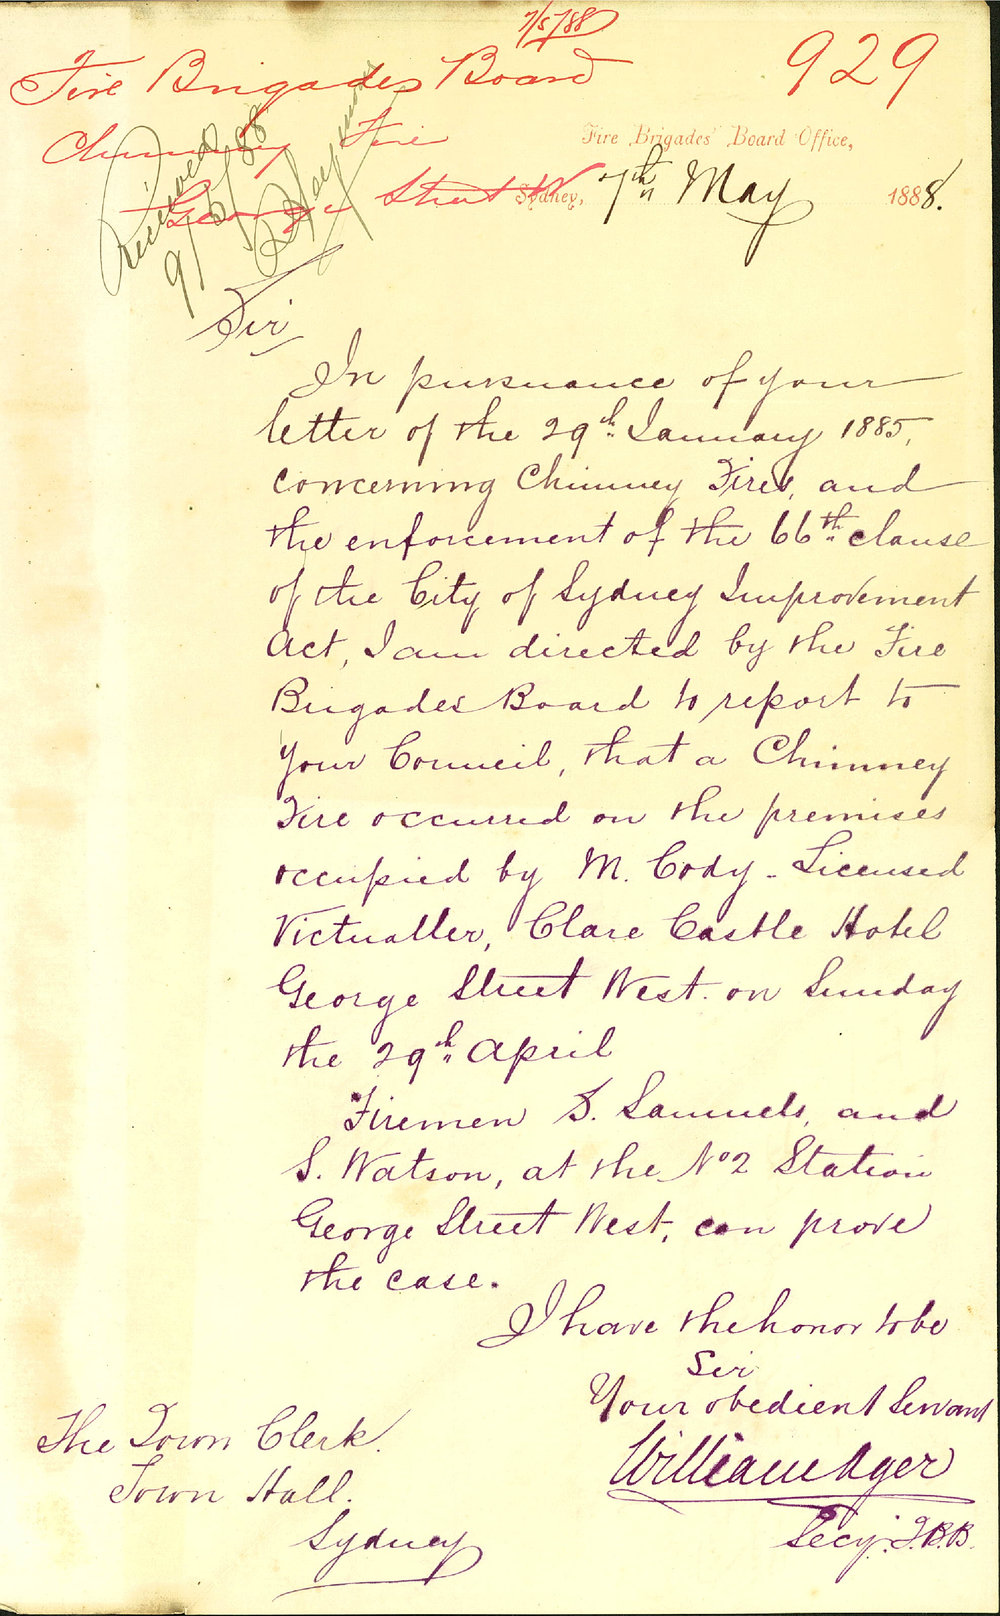 7/5/88
929
Fire Brigades Board
Chimney Fire
George Street W
Received
9/5/88
Fire Brigades' Board Office,
Sydney, 7th May 1888.
Sir
In pursuance of your
letter of the 29th January 1885,
concerning Chimney Fires, and
the enforcement of the 66th clause
of the City of Sydney Improvement
Act, I am directed by the Fire
Brigades Board to report to
your Council, that a Chimney
Fire occurred on the premises
occupied by M. Cody - Licensed
Victualler, Clare Castle Hotel
George Street West. on Sunday
the 29th April
Firemen S. Samuels, and
S. Watson, at the No 2 Station
George Street West, can prove
the case.
I have the honor to be
Sir
Your obedient Servant
William Ager
Secy. F.B.B.
The Town Clerk.
Town Hall.
Sydney